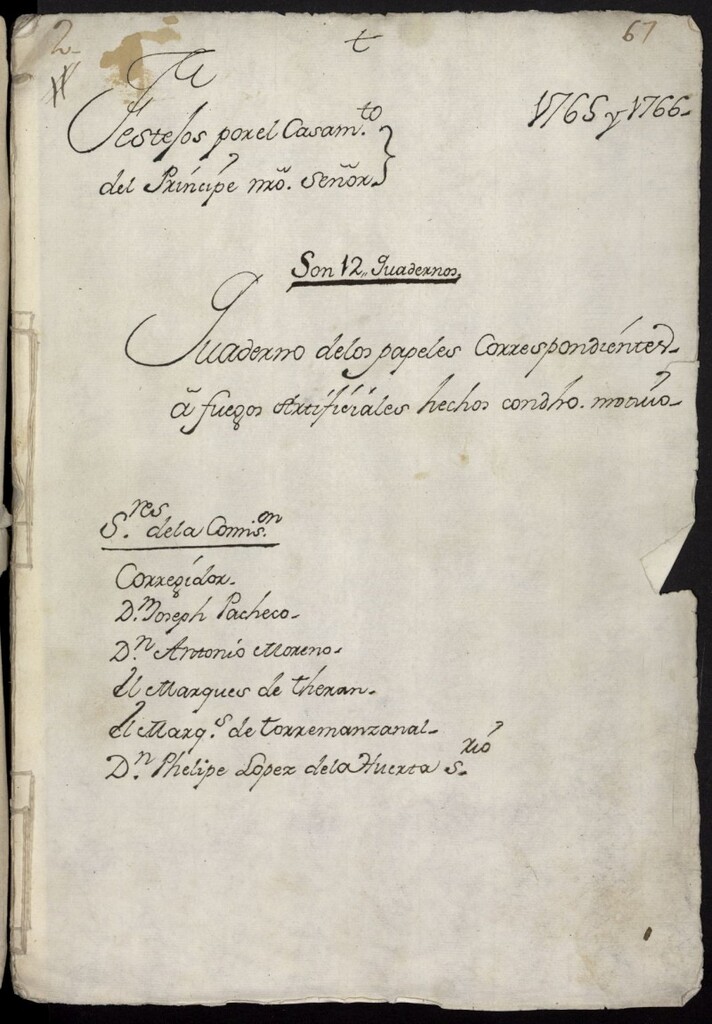 2
67
t
1765 y 1766.
Festejos por el Casam.to
del Príncipe nrõ. Señor
Son 12,, Quadernos,
Quaderno delos papeles Correspondientes
â fuegos Artificiales hechos condho. motivo
S.res dela Comis.on
Corregidor.
D.n Joseph Pacheco.
D.n Antonio Moreno.
El Marques de Theran.
El Marq.s de Torremanzanal.
D.n Phelipe Lopez dela Huerta S.rio